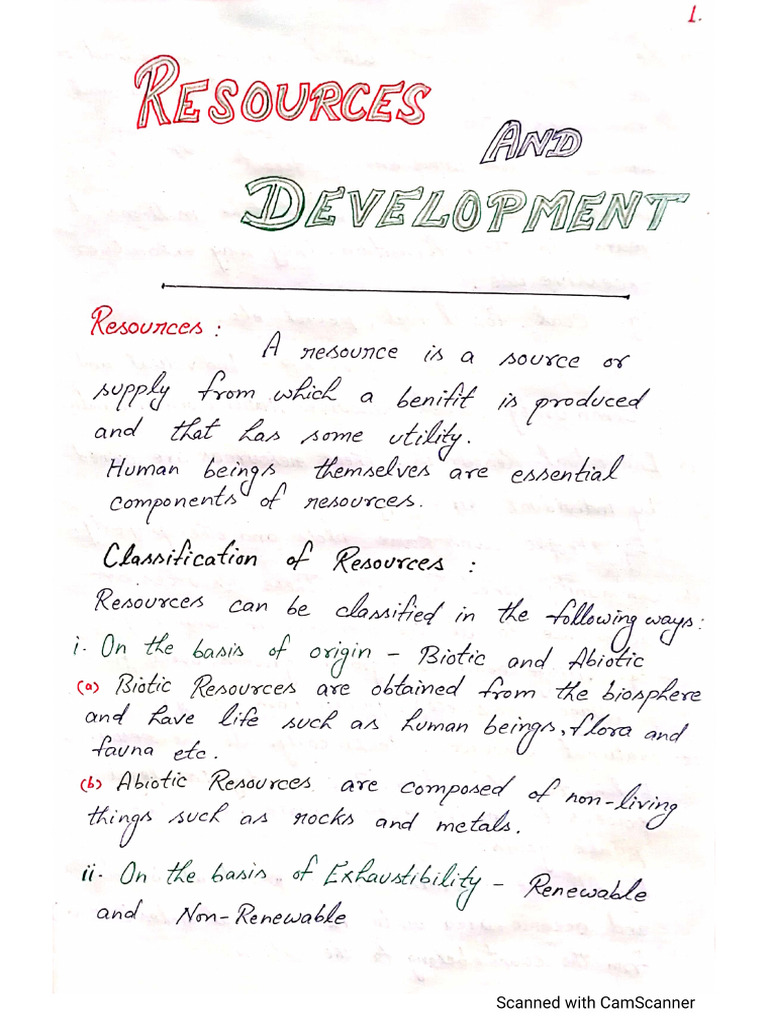 1.
RESOURCES
AND
DEVELOPMENT
Resources :
A resource is a source or
supply from which a benifit is produced
and that has some utility.
Human beings themselves are essential
components of resources.
Classification of Resources :
Resources can be classified in the following ways:
i. On the basis of origin - Biotic and Abiotic
(a) Biotic Resources are obtained from the biosphere
and have life such as human beings, flora and
fauna etc.
(b) Abiotic Resources are composed of non-living
things such as rocks and metals.
ii. On the basis of Exhaustibility - Renewable
and Non-Renewable
Scanned with CamScanner